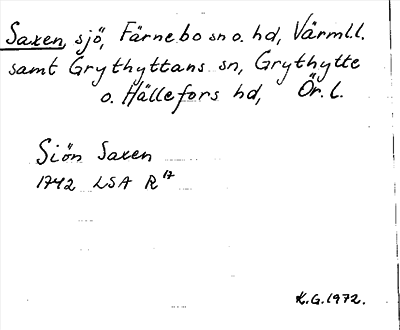 Saxen, sjö, Färnebo sn o. hd, Värml.l.
samt Grythyttans sn, Grythytte
o. Hällefors hd, Ör. l.
Siön Saxen
1742 LSA R 17
K.G.1972.